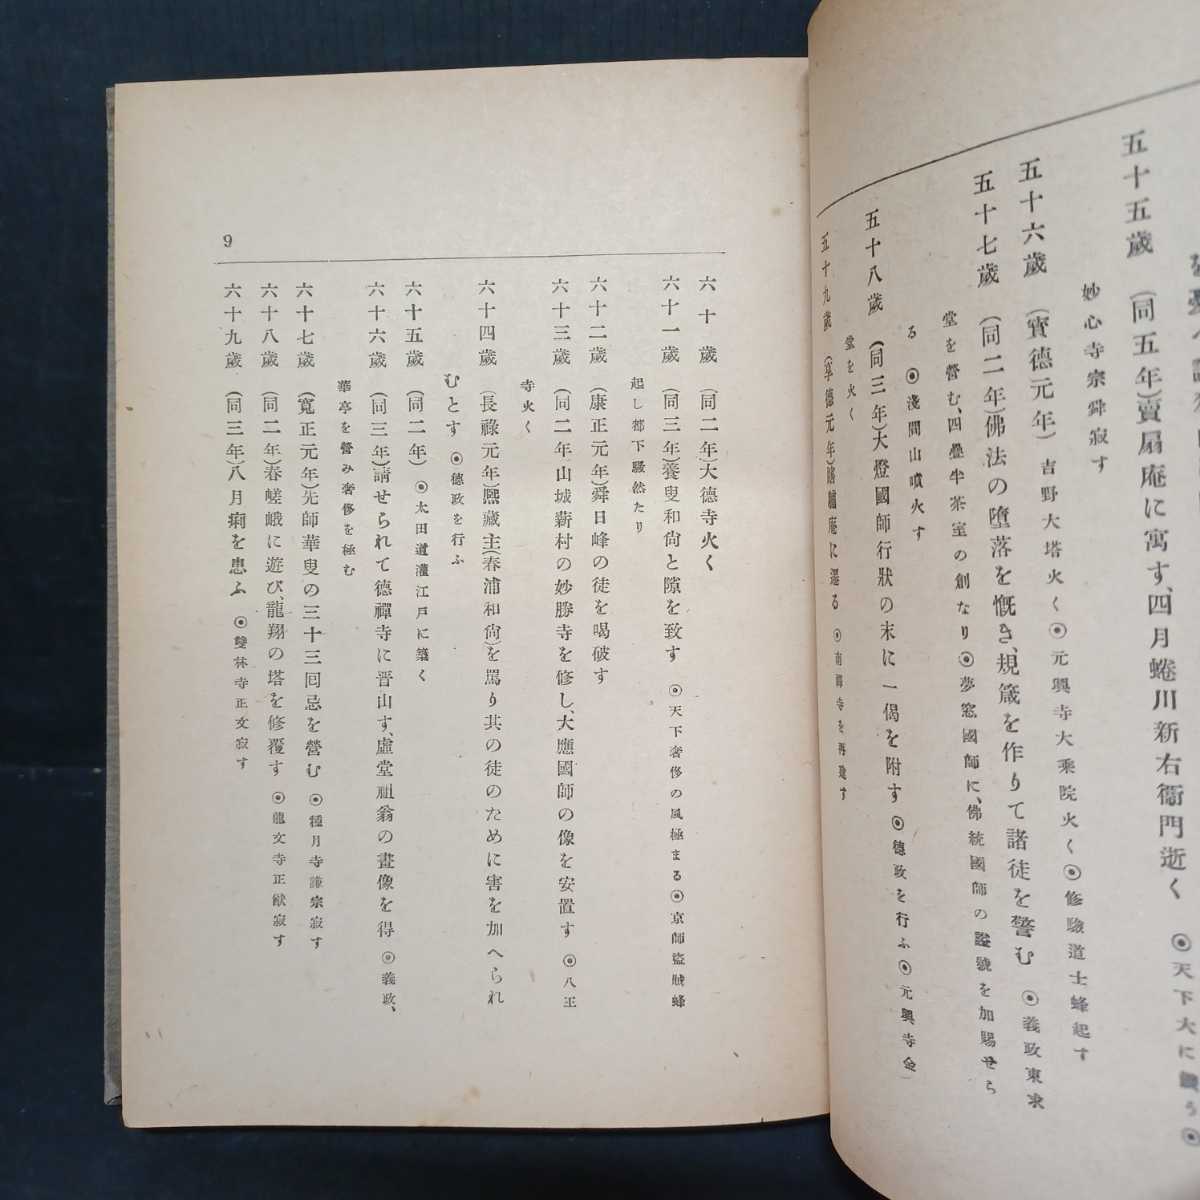 五十五歳 (同五年)賣扇庵に寓す、四月蜷川新右衞門逝く ◉天下大に
妙心寺宗舜寂す
五十六歳 (寶德元年) 吉野大塔火く◉元興寺大乘院火く◉修驗道士蜂起す
五十七歳 (同二年)佛法の墮落を慨き、規箴を作りて諸徒を警む ◉義政東求
堂を營む、四疊半茶室の創なり◉夢窓國師に、佛統國師の諡號を加賜せら
る ◉淺間山噴火す
五十八歳 (同三年)大燈國師行狀の末に一偈を附す◉德政を行ふ◉元興寺金
堂を火く
五十九歳 (享德元年)瞎驢庵に還る ◉南禪寺を再建す
9
六十歳 (同二年)大德寺火く
六十一歳 (同三年)養叟和尙と隙を致す ◉天下奢侈の風極まる◉京師盜賊蜂
起し都下騷然たり
六十二歳 (康正元年)舜日峰の徒を喝破す
六十三歳 (同二年山城薪村の妙勝寺を修し、大應國師の像を安置す ◉八王
寺火く
六十四歳 (長祿元年)熈藏主(春浦和尙)を罵り其の徒のために害を加へられ
むとす ◉德政を行ふ
六十五歳 (同二年) ◉太田道灌江戸に築く
六十六歳 (同三年)請せられて德禪寺に晋山す、虛堂祖翁の畫像を得 ◉義政、
華亭を營み奢侈を極む
六十七歳 (寬正元年)先師華叟の三十三回忌を營む ◉種月寺謙宗寂す
六十八歳 (同二年)春嵯峨に遊び、龍翔の塔を修覆す ◉龍文寺正猷寂す
六十九歳 (同三年)八月痢を患ふ ◉雙林寺正文寂す